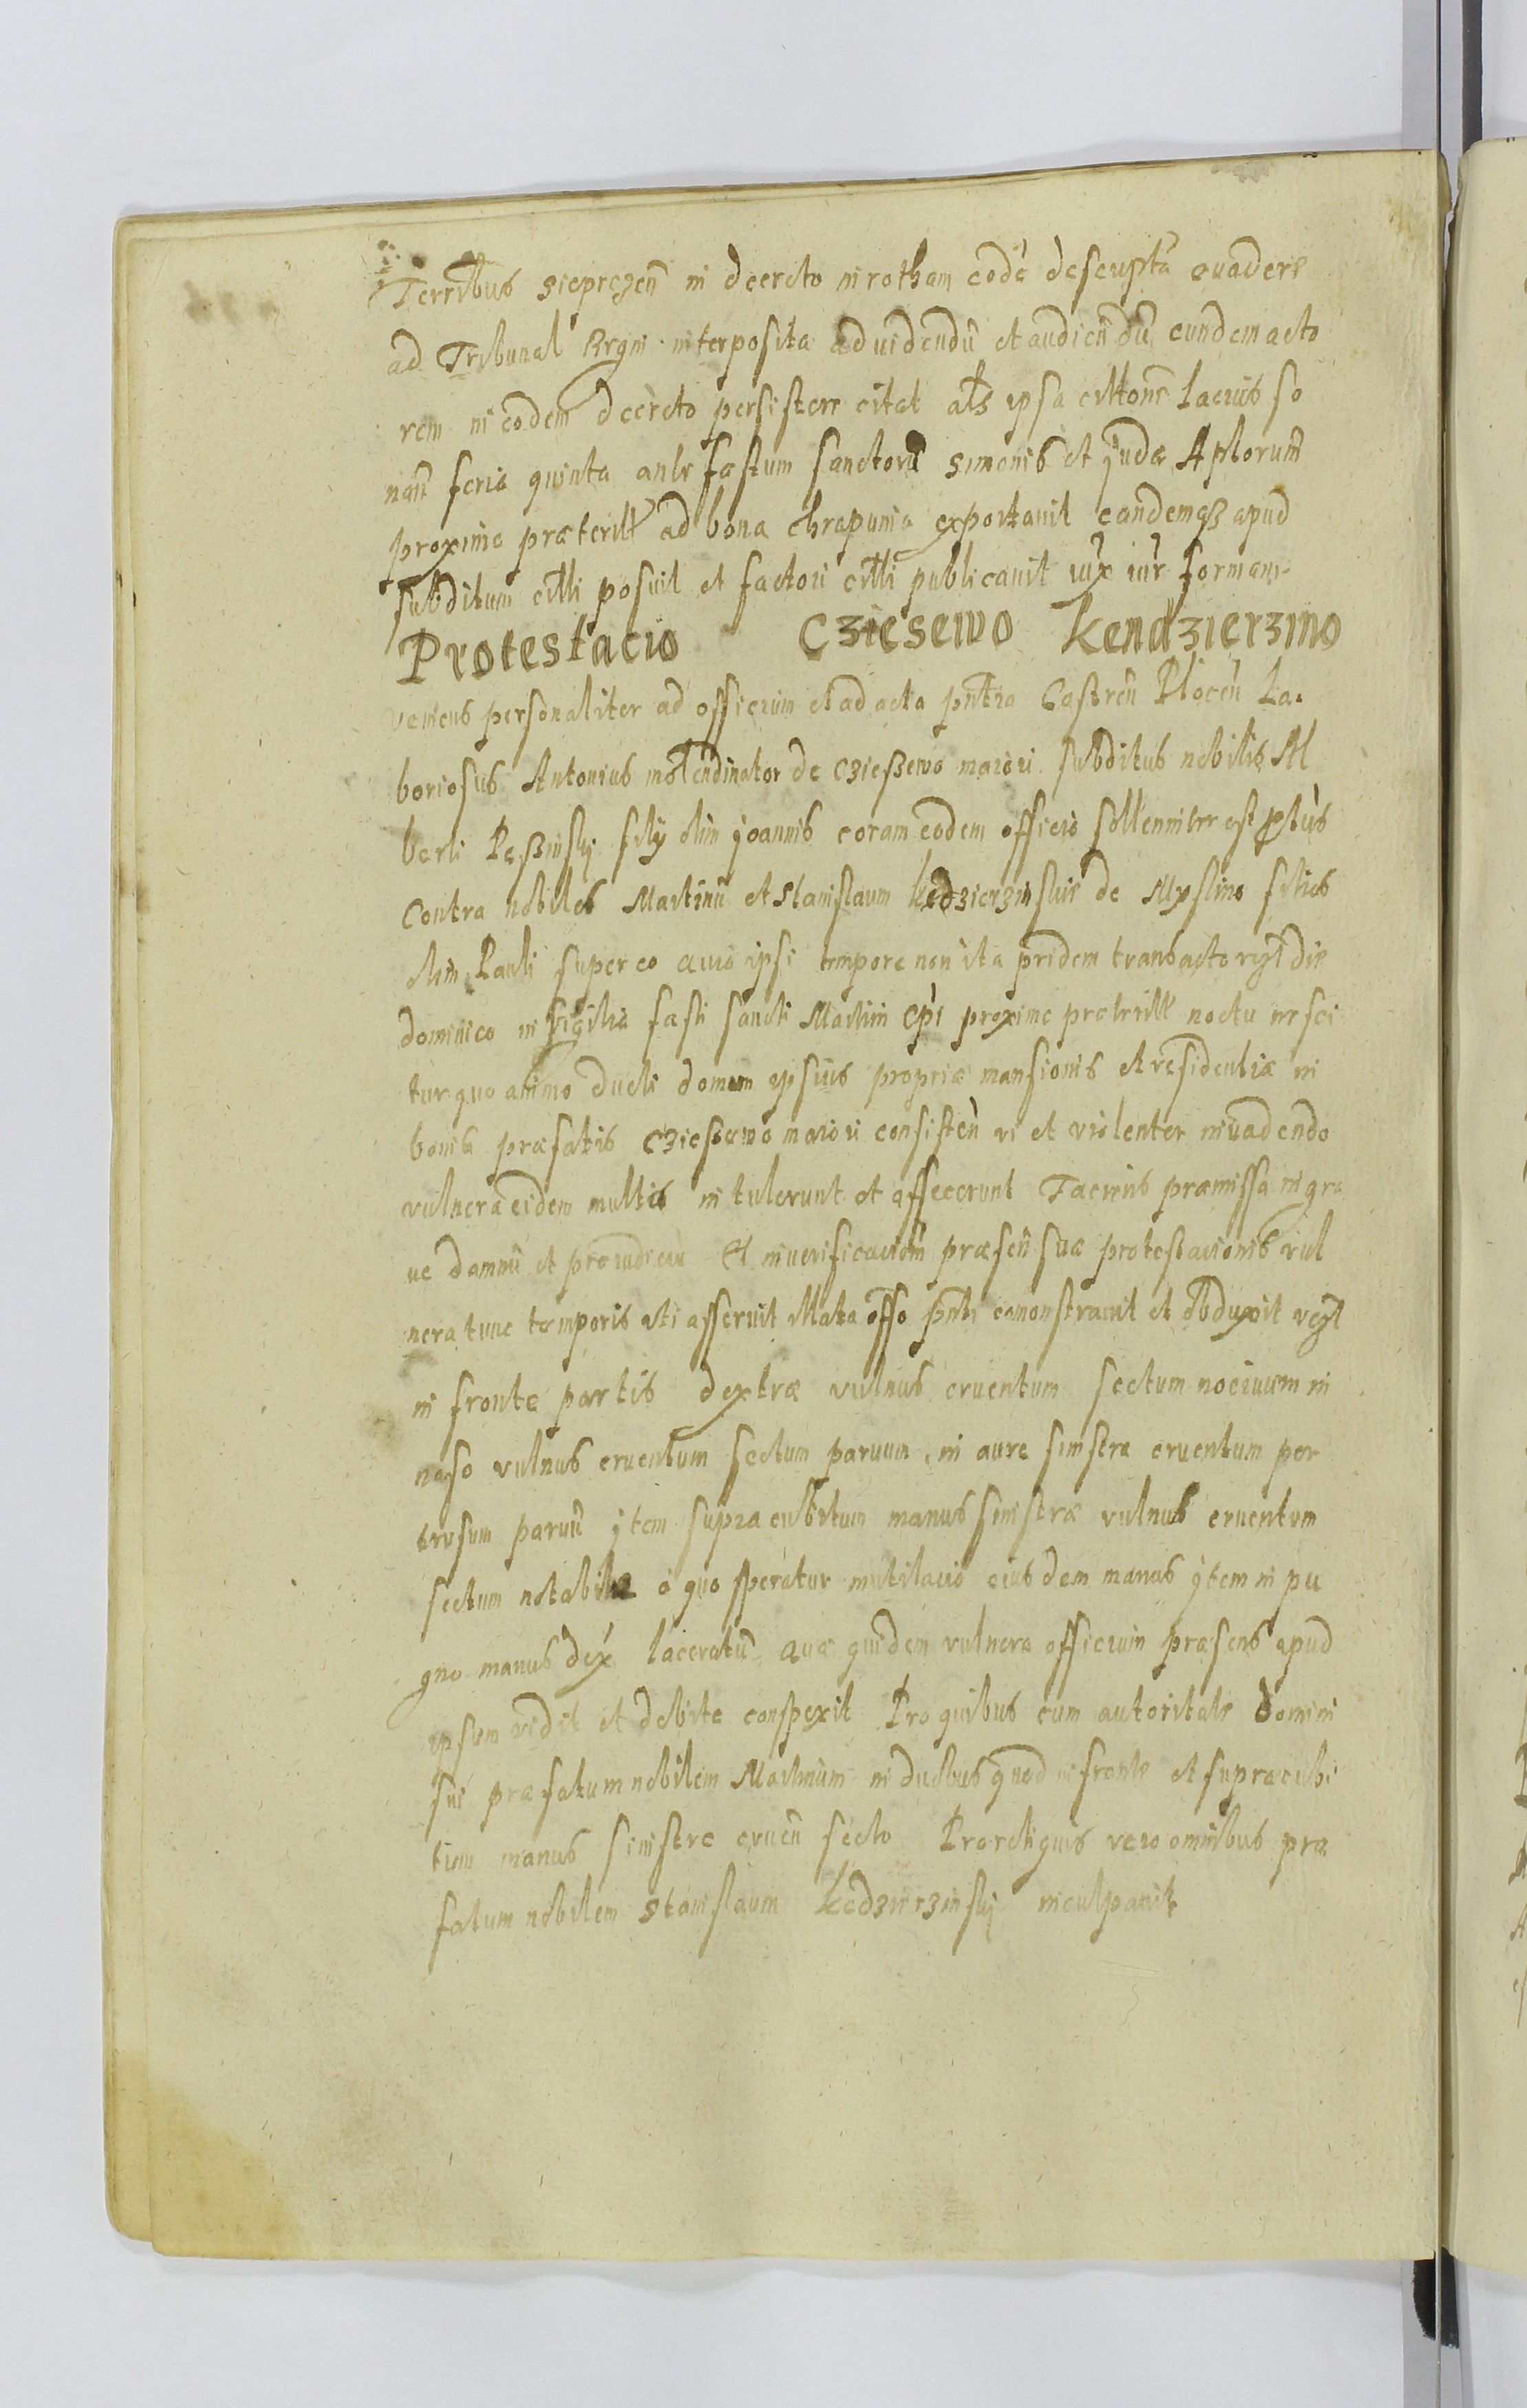 Terribus sieprczen̄ in decreto in rotham eodē descripta euadere
ad Tribunal Regni interposita ad uidendū et audien̄dū eundem acto
rem in eodem decreto persistere citat als ipsa cittone lacius so
nan̄ feria quinta ante festum sanctorū Simonis et Judæ Aplorum
proxime præteritt ad bona Chrapunia exportauit eandemqȝ apud
subditum citti posuit et factori citti publicauit iux iur formam
Protestacio Cziesewo Kendzierzino
Veniens personaliter ad officium et ad acta pn̄tia Castren̄ Plocen̄ La-
boriosus Antonius molendinator de Czießewo maiori subditus nobilis Al
berti filij olim Joannis coram eodem officio sollenniter est ptus
Contra nobiles Martinū et Stanislaum Kedzierzinskie de filios
olim Pauli super eo quio ipsi tempore non ita pridem transacto vizt die
dominico in vigilia festi sancti Martini Epi proxime præteritt noctu nesci
tur quo animo ducti domum ipsius propriæ mansionis et residentiæ in
bonis præfatis Czießewo maiori consisten̄ vi et violenter inuadendo
vulnera eidem multa intulerunt et affecerunt Faciens præmissa in gra
ue damnū et præiudiciū Et in uerificacionem præsen̄ suæ protestacionis vul
nera tunc temporis uti asseruit illata offo pn̄ti comonstrauit et obduxit vizt
in fronte partis dextræ vulnus cruentum sectum nociuum in
naso vulnus cruentum sectum paruum, in aure sinistra cruentum per
trusum paruū Item supra cubitum manus sinistræ vulnus cruentum
sectum notabile a quo speratur mutilacio eiusdem manus Item in pu
gno manus dex laceratū Quæ quidem vulnera officium præsens apud
ipsum vidit et debite conspexit Pro quibus cum autoritate Domini
sui præfatum nobilem Martinum in duobus quod in fronte et supra cubi
tum manus sinistre cruen̄ secto Pro reliquis vero omnibus præ
fatum nobilem Stanislaum Kedzierzinskij inculpauit